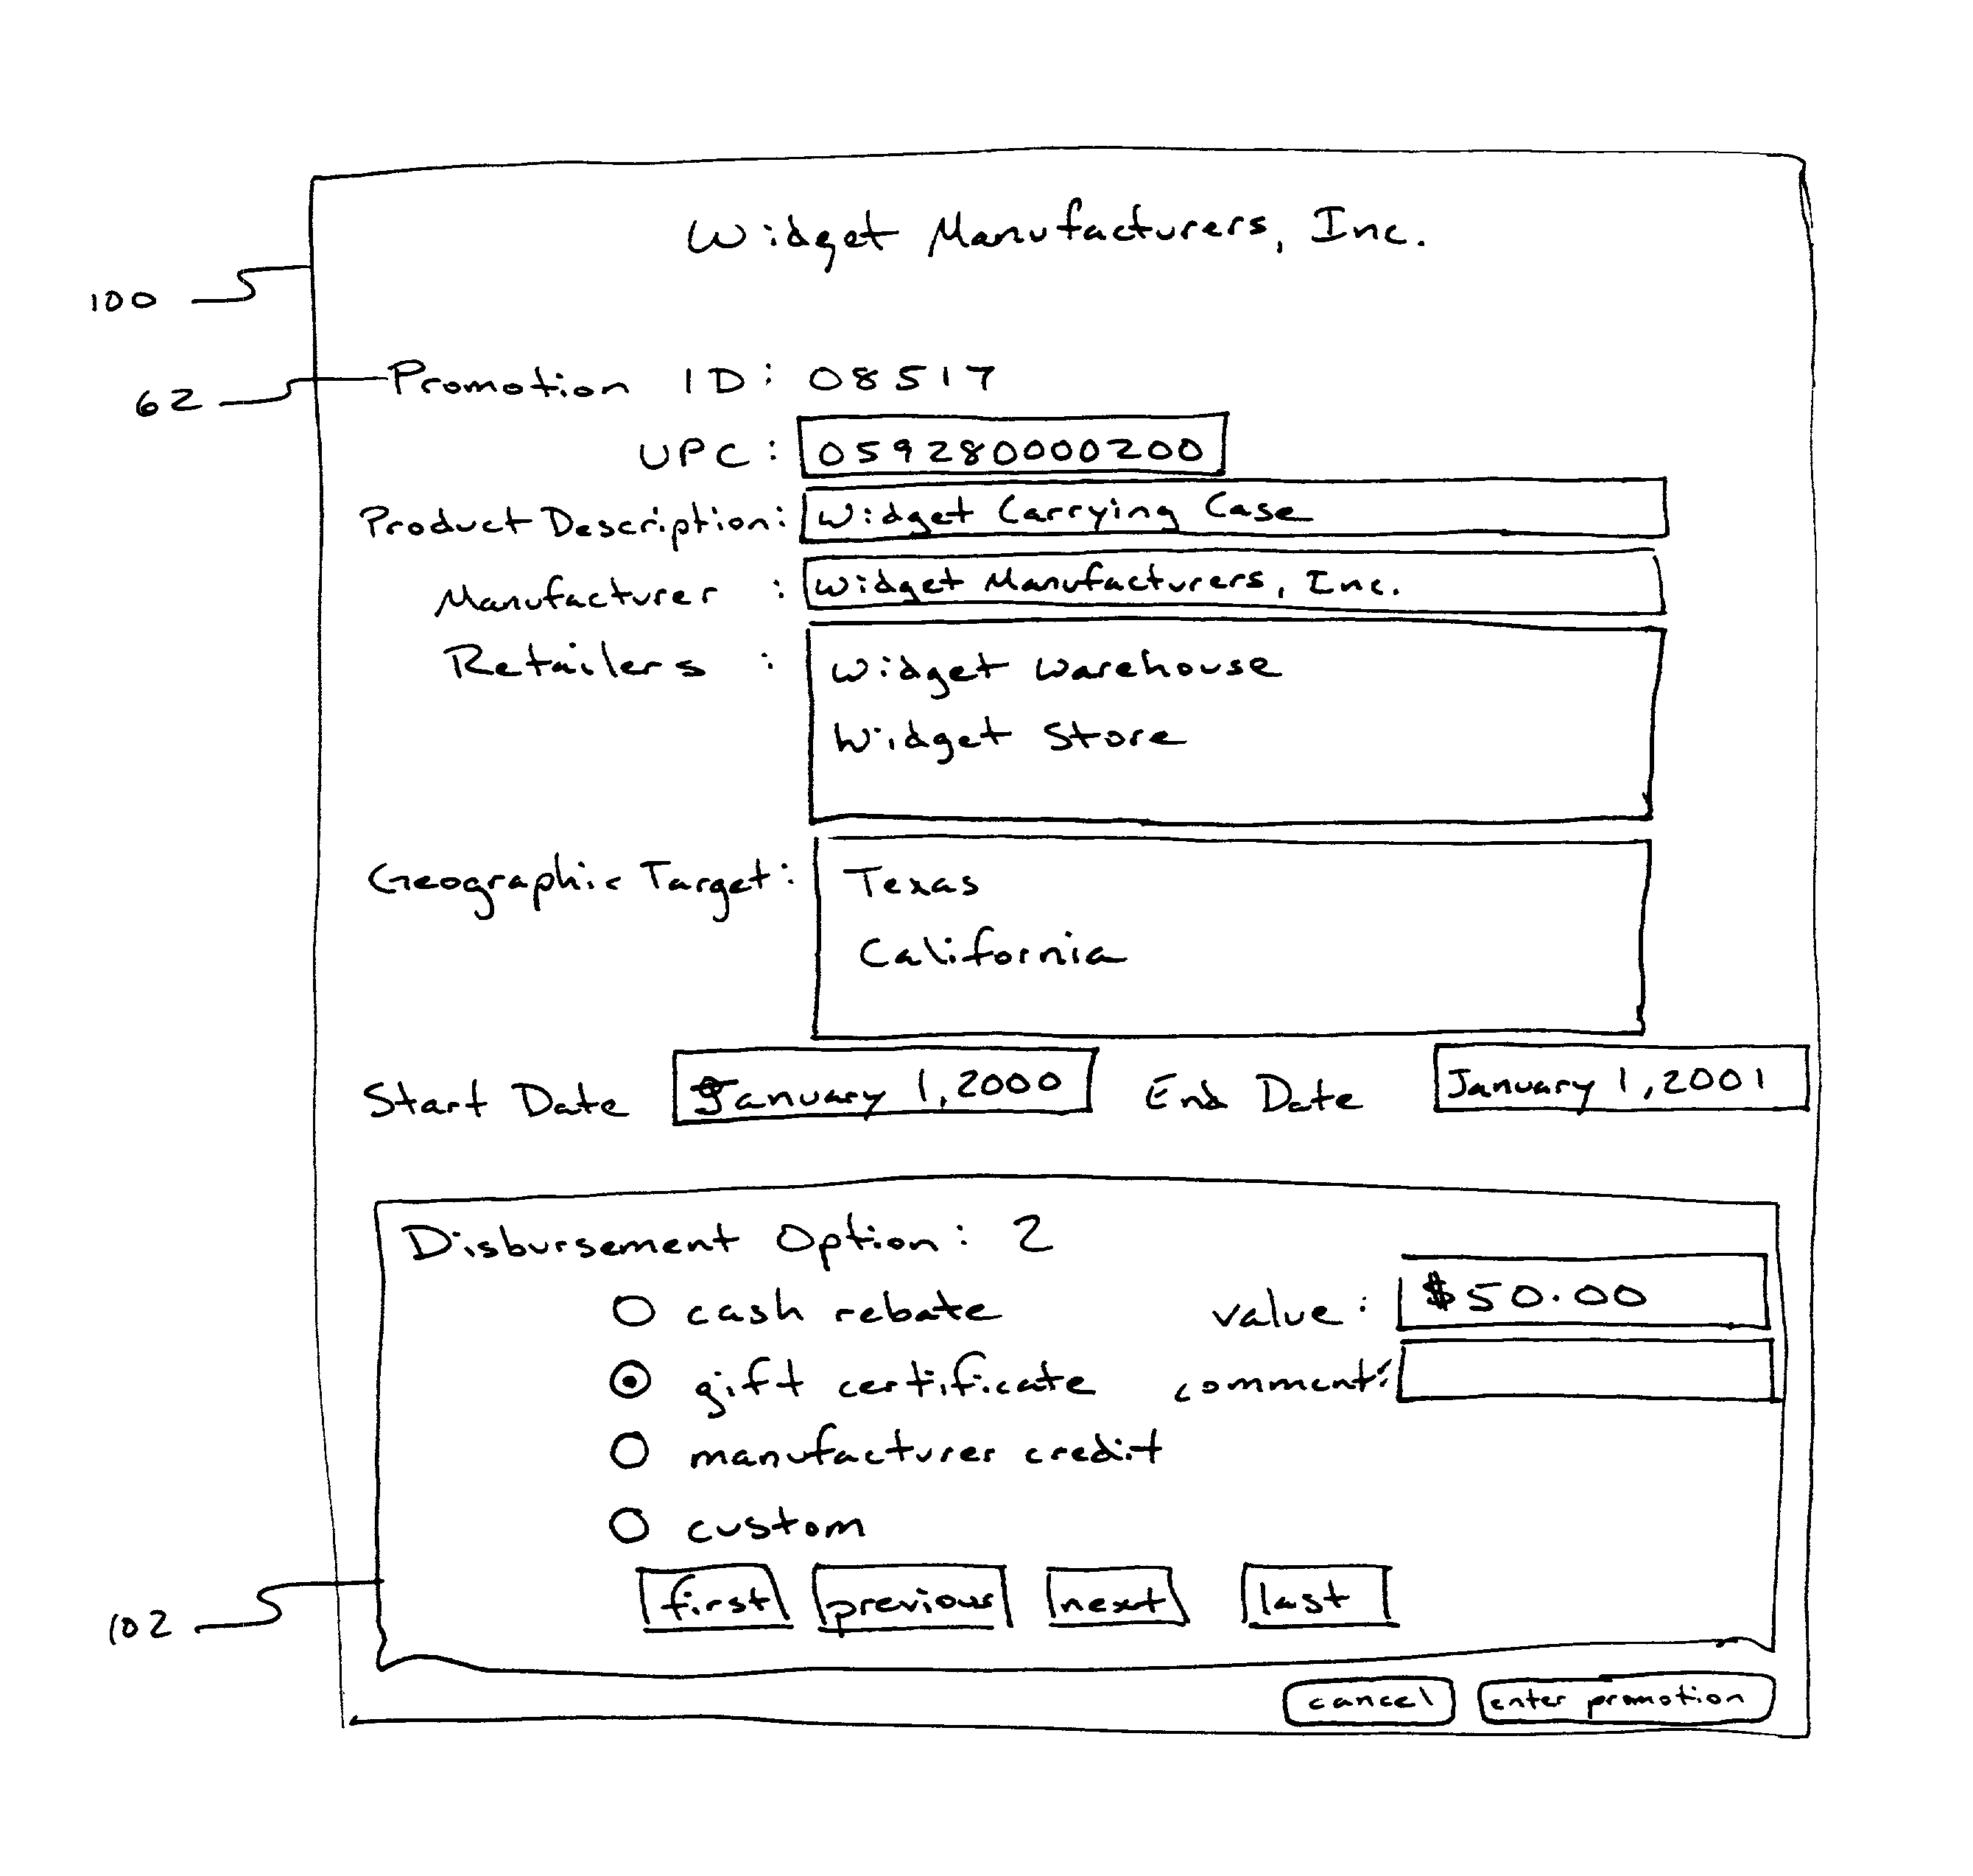 Widget Manufacturers, Inc.
100
Promotion ID: 08517
62
UPC: 059280000200
Product Description: Widget Carrying Case
Manufacturer : Widget Manufacturers, Inc.
Retailers : Widget Warehouse
Widget Store
Geographic Target: Texas
California
Start Date January 1, 2000 End Date January 1, 2001
Disbursement Option: 2
cash rebate value: $50.00
gift certificate comment:
manufacturer credit
custom
first previous next last
102
cancel enter promotion